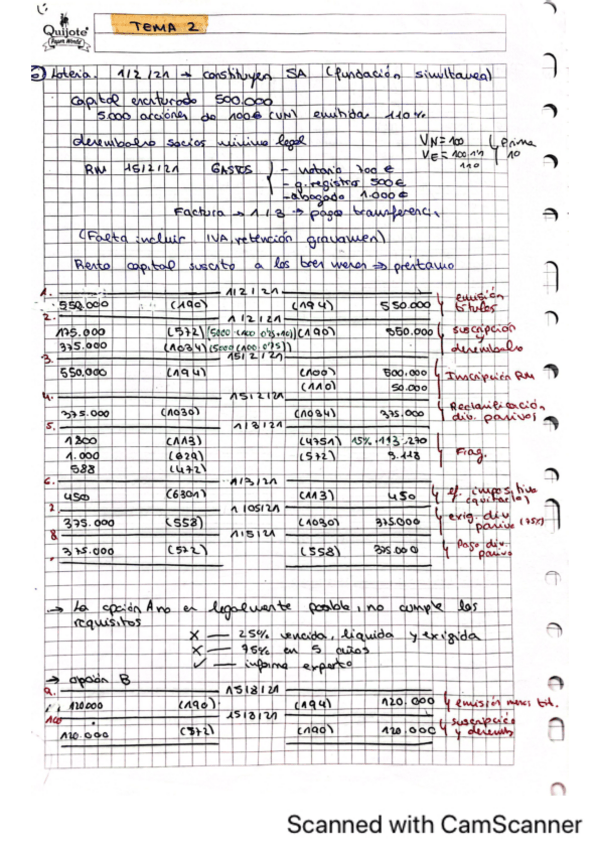 Quijote
TEMA 2
Lotería. 1/2/21 → constituyen SA (fundación simultanea)
capital escriturado 500.000
5.000 acciones de 100€ (VN) emitida 110%
desembolso socios mínimo legal
VN=100
VE=100·1'1
110
Prima
10
RM 15/2/21 GASTOS
- notario 300€
- g. registros 500€
- abogado 1.000€
Factura → 1/3 → pagos transferenci.
(Falta incluir IVA, retención gravamen)
Resto capital suscrito a los tres meses ⇒ préstamo
1. 1/2/21
550.000 (190) (194) 550.000 emisión títulos
2. 1/2/21
175.000 (572) (5000·(100·0'25+10)) (190) 550.000 suscripción y desembolso
375.000 (1034) (5000(100·0'75))
3. 15/2/21
550.000 (194) (100) 500.000 Inscripción RM
(110) 50.000
4. 15/2/21
375.000 (1030) (1034) 375.000 Reclasificación div. pasivos
5. 1/3/21
1800 (113) (4751) 15%
1.000 (629) (572) 3.118
588 (472)
6. 1/3/21
450 (6301) (113) 450 ef. impositivo
7. 1/05/21
375.000 (558) (1030) 375000 exig. div pasivo (75%)
8 1/5/21
375.000 (572) (558) 375.000 Pago div. pasivo
→ La opción A no es legalmente posible, no cumple los
requisitos
X — 25% vencida, líquida y exigida
X — 75% en 5 años
✓ — informe experto
→ opción B
9. 15/8/21
120.000 (190) (194) 120.000 emisión nuevos tít.
15/8/21
120.000 (572) (190) 120.000 suscripción y desemb
Scanned with CamScanner